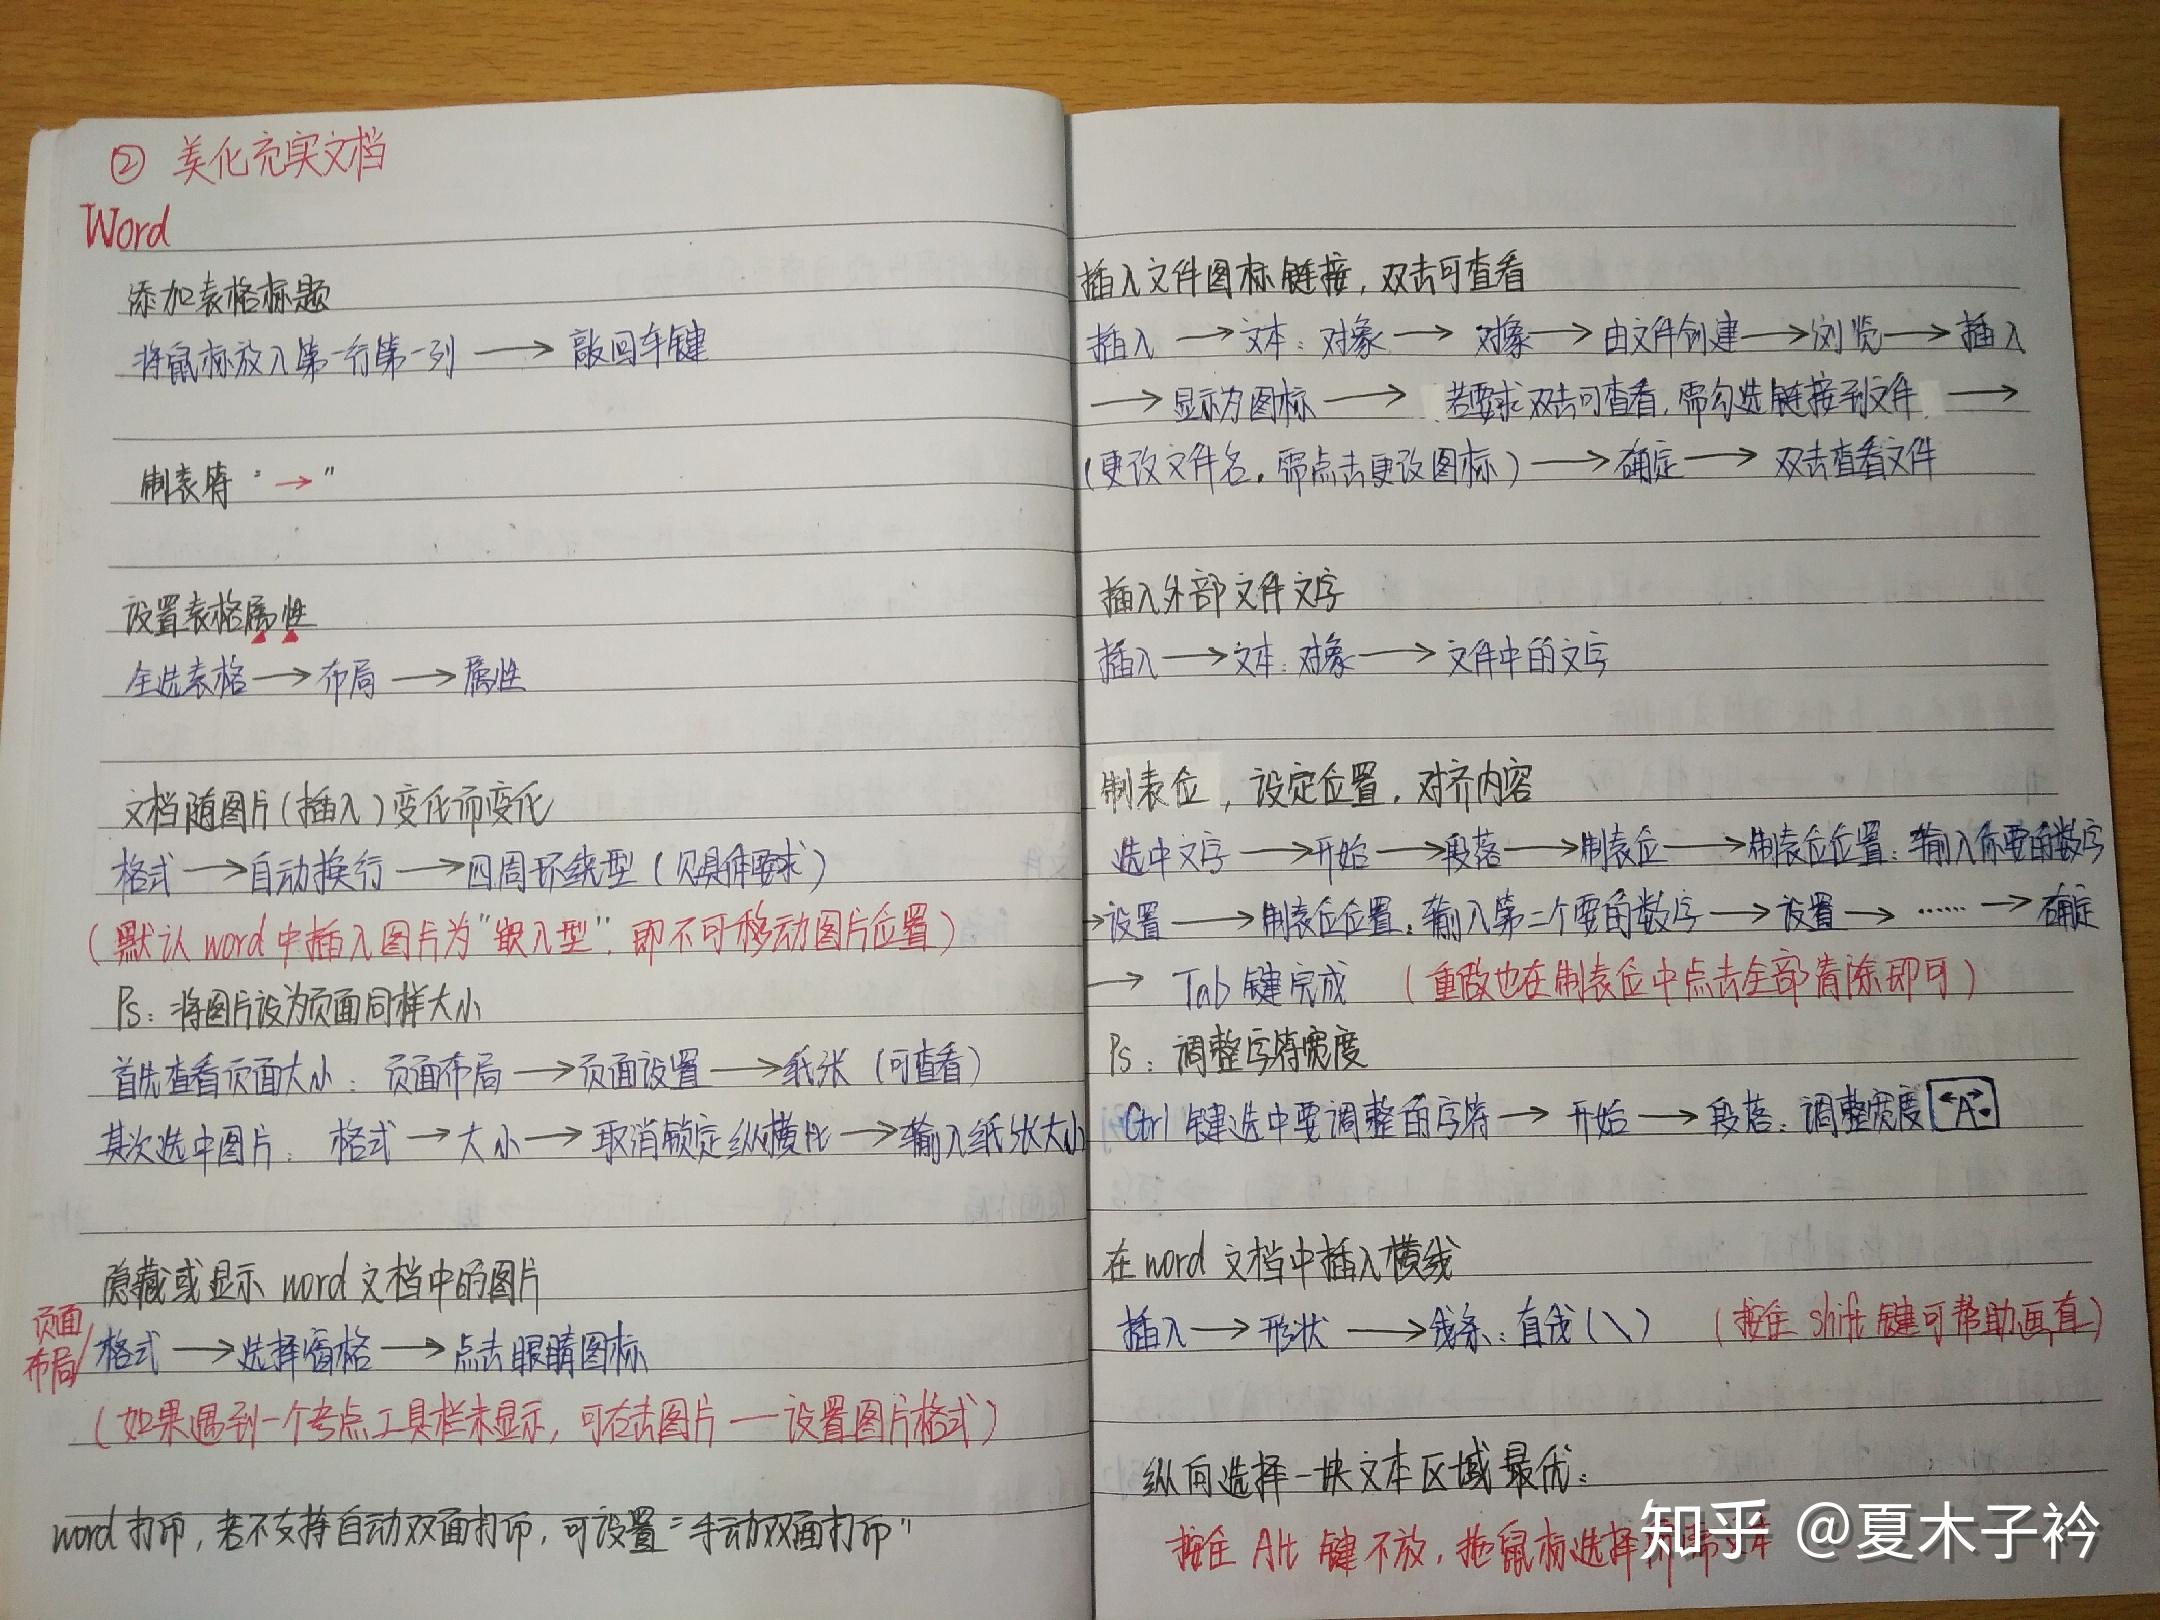 ② 美化充实文档
Word
添加表格标题
将鼠标放入第一行第一列 → 敲回车键
制表符 "→"
设置表格属性
全选表格 → 布局 → 属性
文档随图片(插入)变化而变化
格式 → 自动换行 → 四周环绕型 (见具体要求)
(默认 word 中插入图片为"嵌入型", 即不可移动图片位置)
Ps: 将图片设为页面同样大小
首先查看页面大小: 页面布局 → 页面设置 → 纸张 (可查看)
其次选中图片: 格式 → 大小 → 取消锁定纵横比 → 输入纸张大小
隐藏或显示 word 文档中的图片
页面布局/格式 → 选择窗格 → 点击眼睛图标
(如果遇到一个考点工具栏未显示, 可右击图片 — 设置图片格式)
word 打印, 若不支持自动双面打印, 可设置"手动双面打印"
插入文件图标链接, 双击可查看
插入 → 文本: 对象 → 对象 → 由文件创建 → 浏览 → 插入
→ 显示为图标 → 若要求双击可查看, 需勾选链接到文件 →
(更改文件名, 需点击更改图标) → 确定 → 双击查看文件
插入外部文件文字
插入 → 文本: 对象 → 文件中的文字
制表位, 设定位置, 对齐内容
选中文字 → 开始 → 段落 → 制表位 → 制表位位置: 输入你要的数字
→ 设置 → 制表位位置: 输入第二个要的数字 → 设置 → …… → 确定
→ Tab 键完成 (重做也在制表位中点击全部清除即可)
Ps: 调整字符宽度
Ctrl 键选中要调整的字符 → 开始 → 段落: 调整宽度 A
在 word 文档中插入横线
插入 → 形状 → 线条: 直线 (\) (按住 shift 键可帮助画直)
纵向选择一块文本区域最优:
按住 Alt 键不放, 拖鼠标选择所需文本
知乎 @夏木子衿